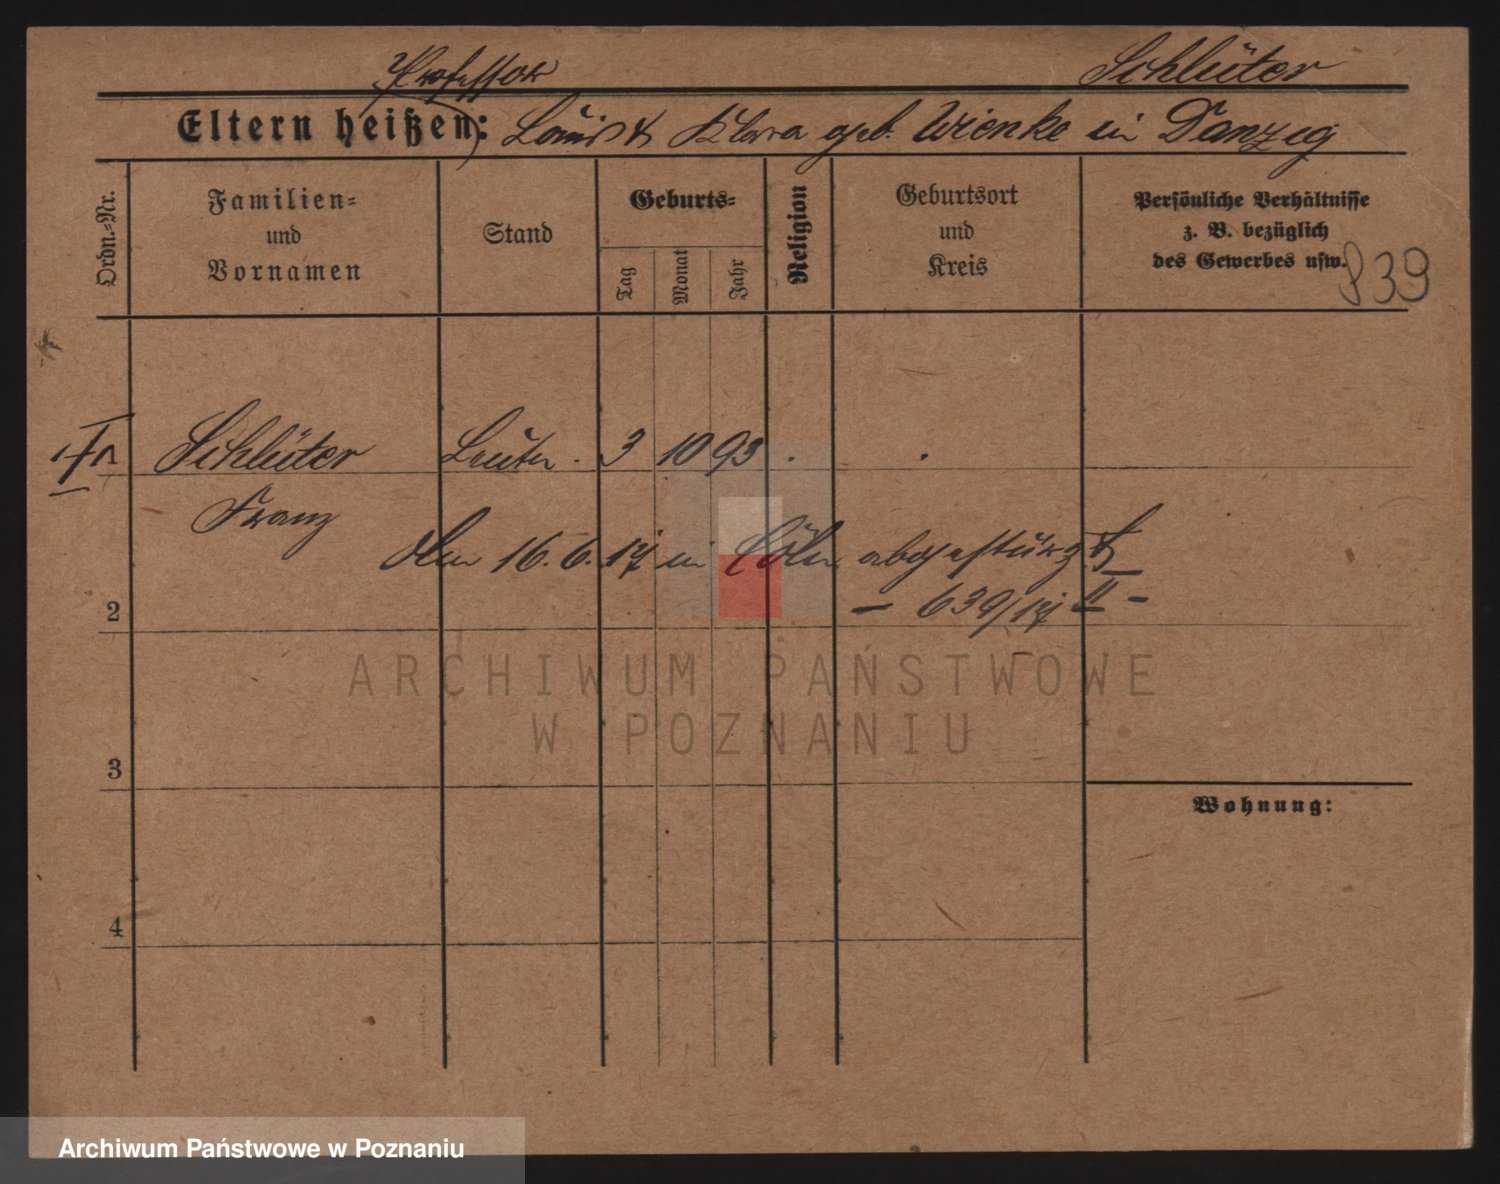 Professor Schlüter
Eltern heißen: Louis & Klara geb. Wienke in Danzig
Ordn.-Nr.
Familien-
und
Vornamen
Stand
Geburts-
Tag
Monat
Jahr
Religion
Geburtsort
und
Kreis
Persönliche Verhältnisse
z. B. bezüglich
des Gewerbes usw.
839
Schlüter Leutn. 3 10 93
Franz
den 16.6.17 in Cöln abgestürzt
- 639/17 II -
2
3
4
Wohnung:
ARCHIWUM PAŃSTWOWE
W POZNANIU
Archiwum Państwowe w Poznaniu